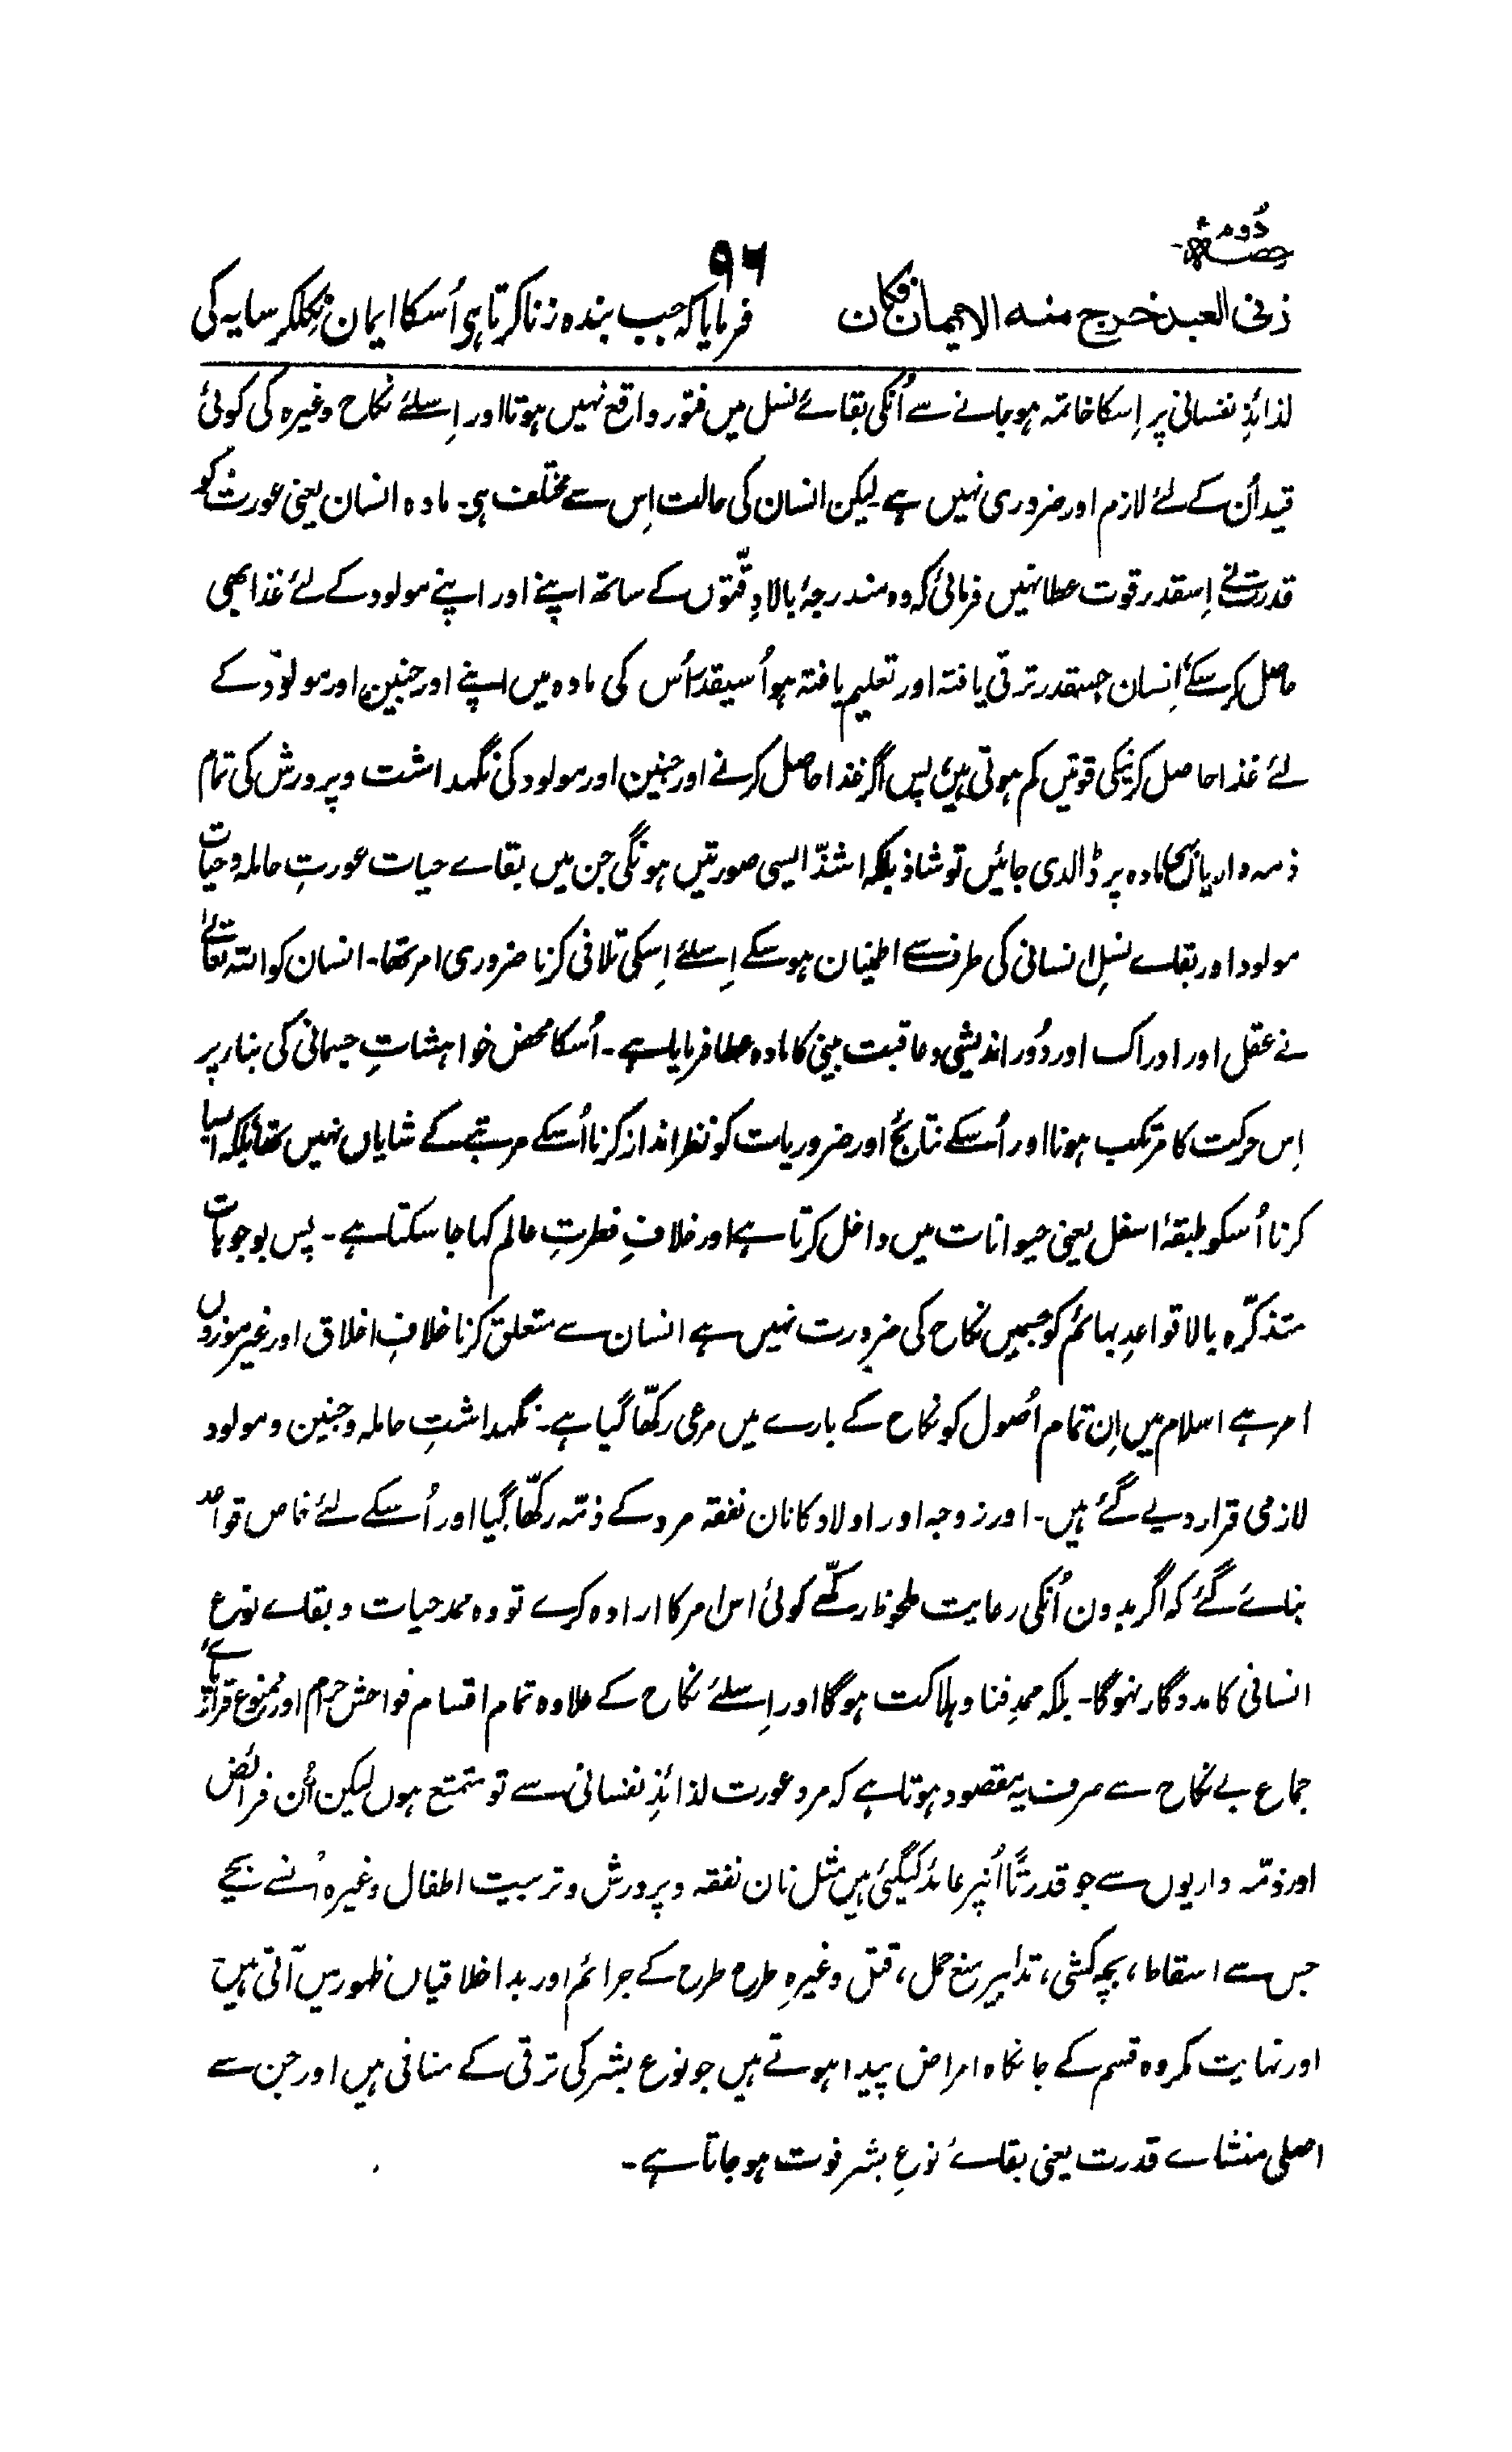 حصہ دُوم
۹۶
زنی العبد خرج منه الایمان فکان
فرمایا کہ جب بندہ زنا کرتا ہی اُسکا ایمان نکلکر سایہ کی
لذائذِ نفسانی پر اِسکا خاتمہ ہو جانے سے اُنکی بقائے نسل میں فتور واقع نہیں ہوتا اور اِسلئے نکاح وغیرہ کی کوئی
قید اُن کے لئے لازم اور ضروری نہیں ہے۔ لیکن انسان کی حالت اِس سے مختلف ہی۔ مادہ انسان یعنی عورت کو
قدرت نے اِسقدر قوت عطا نہیں فرمائی کہ وہ مندرجۂ بالا دِقّتوں کے ساتھ اپنے اور اپنے مولود کے لئے غذا بھی
حاصل کر سکے۔ اِنسان جسقدر ترقی یافتہ اور تعلیم یافتہ ہو اُسیقدر اُس کی مادہ میں اپنے اور جنین اور مولود کے
لئے غذا حاصل کرنیکی قوتیں کم ہوتی ہیں۔ پس اگر غذا حاصل کرنے اور جنین اور مولود کی نگہداشت و پرورش کی تمام
ذمہ داریاں مادہ پر ڈالدی جائیں تو شاذ بلکہ اشذّ ایسی صورتیں ہونگی جن میں بقاے حیات عورتِ حاملہ و حیات
مولود اور بقاے نسلِ انسانی کی طرف سے اطمینان ہو سکے اِسلئے اِسکی تلافی کرنا ضروری امر تھا۔ انسان کو اللہ تعالےٰ
نے عقل اور ادراک اور دُور اندیشی و عاقبت بینی کا مادہ عطا فرمایا ہے۔ اُسکا محض خواہشاتِ جسمانی کی بنا پر
اِس حرکت کا مرتکب ہونا اور اُسکے نتائج اور ضروریات کو نظر انداز کرنا اُسکے مرتبے کے شایاں نہیں تھا بلکہ ایسا
کرنا اُسکو طبقۂ اسفل یعنی حیوانات میں داخل کرتا ہے اور خلافِ فطرتِ عالم کہا جا سکتا ہے۔ پس بوجوہات
متذکّرہ بالا قواعدِ بہائم کو جسمیں نکاح کی ضرورت نہیں ہے انسان سے متعلق کرنا خلافِ اخلاق اور غیر موزوں
امر ہے اسلام میں اِن تمام اُصول کو نکاح کے بارے میں مرعی رکھّا گیا ہے۔ نگہداشتِ حاملہ و جنین و مولود
لازمی قرار دیے گئے ہیں۔ اور زوجہ اور اولاد کا نان نفقہ مرد کے ذمّہ رکھّا گیا اور اُسکے لئے خاص قواعد
بنائے گئے کہ اگر بدون اُنکی رعایت ملحوظ رکھّے کوئی اس امر کا ارادہ کرے تو وہ ممد حیات و بقاے نوع
انسانی کا مددگار نہوگا۔ بلکہ ممدِ فنا و ہلاکت ہوگا اور اِسلئے نکاح کے علاوہ تمام اقسام فواحش حرام اور ممنوع قرار پائے
جماع بے نکاح سے صرف یہ مقصود ہوتا ہے کہ مرد عورت لذائذِ نفسانی سے تو متمتع ہوں لیکن اُن فرائض
اور ذمّہ داریوں سے جو قدرتًا اُنپر عائد کیگئی ہیں مثل نان نفقہ و پرورش و تربیت اطفال وغیرہ اُنسے بچے
جس سے اسقاط، بچہ کشی، تدابیر منع حمل، قتل وغیرہِ طرح طرح کے جرائم اور بد اخلاقیاں ظہور میں آتی ہیں
اور نہایت مکروہ قسم کے جانکاہ امراض پیدا ہوتے ہیں جو نوع بشر کی ترقی کے منافی ہیں اور جن سے
اصلی منشاے قدرت یعنی بقاۓ نوعِ بشر فوت ہو جاتا ہے۔